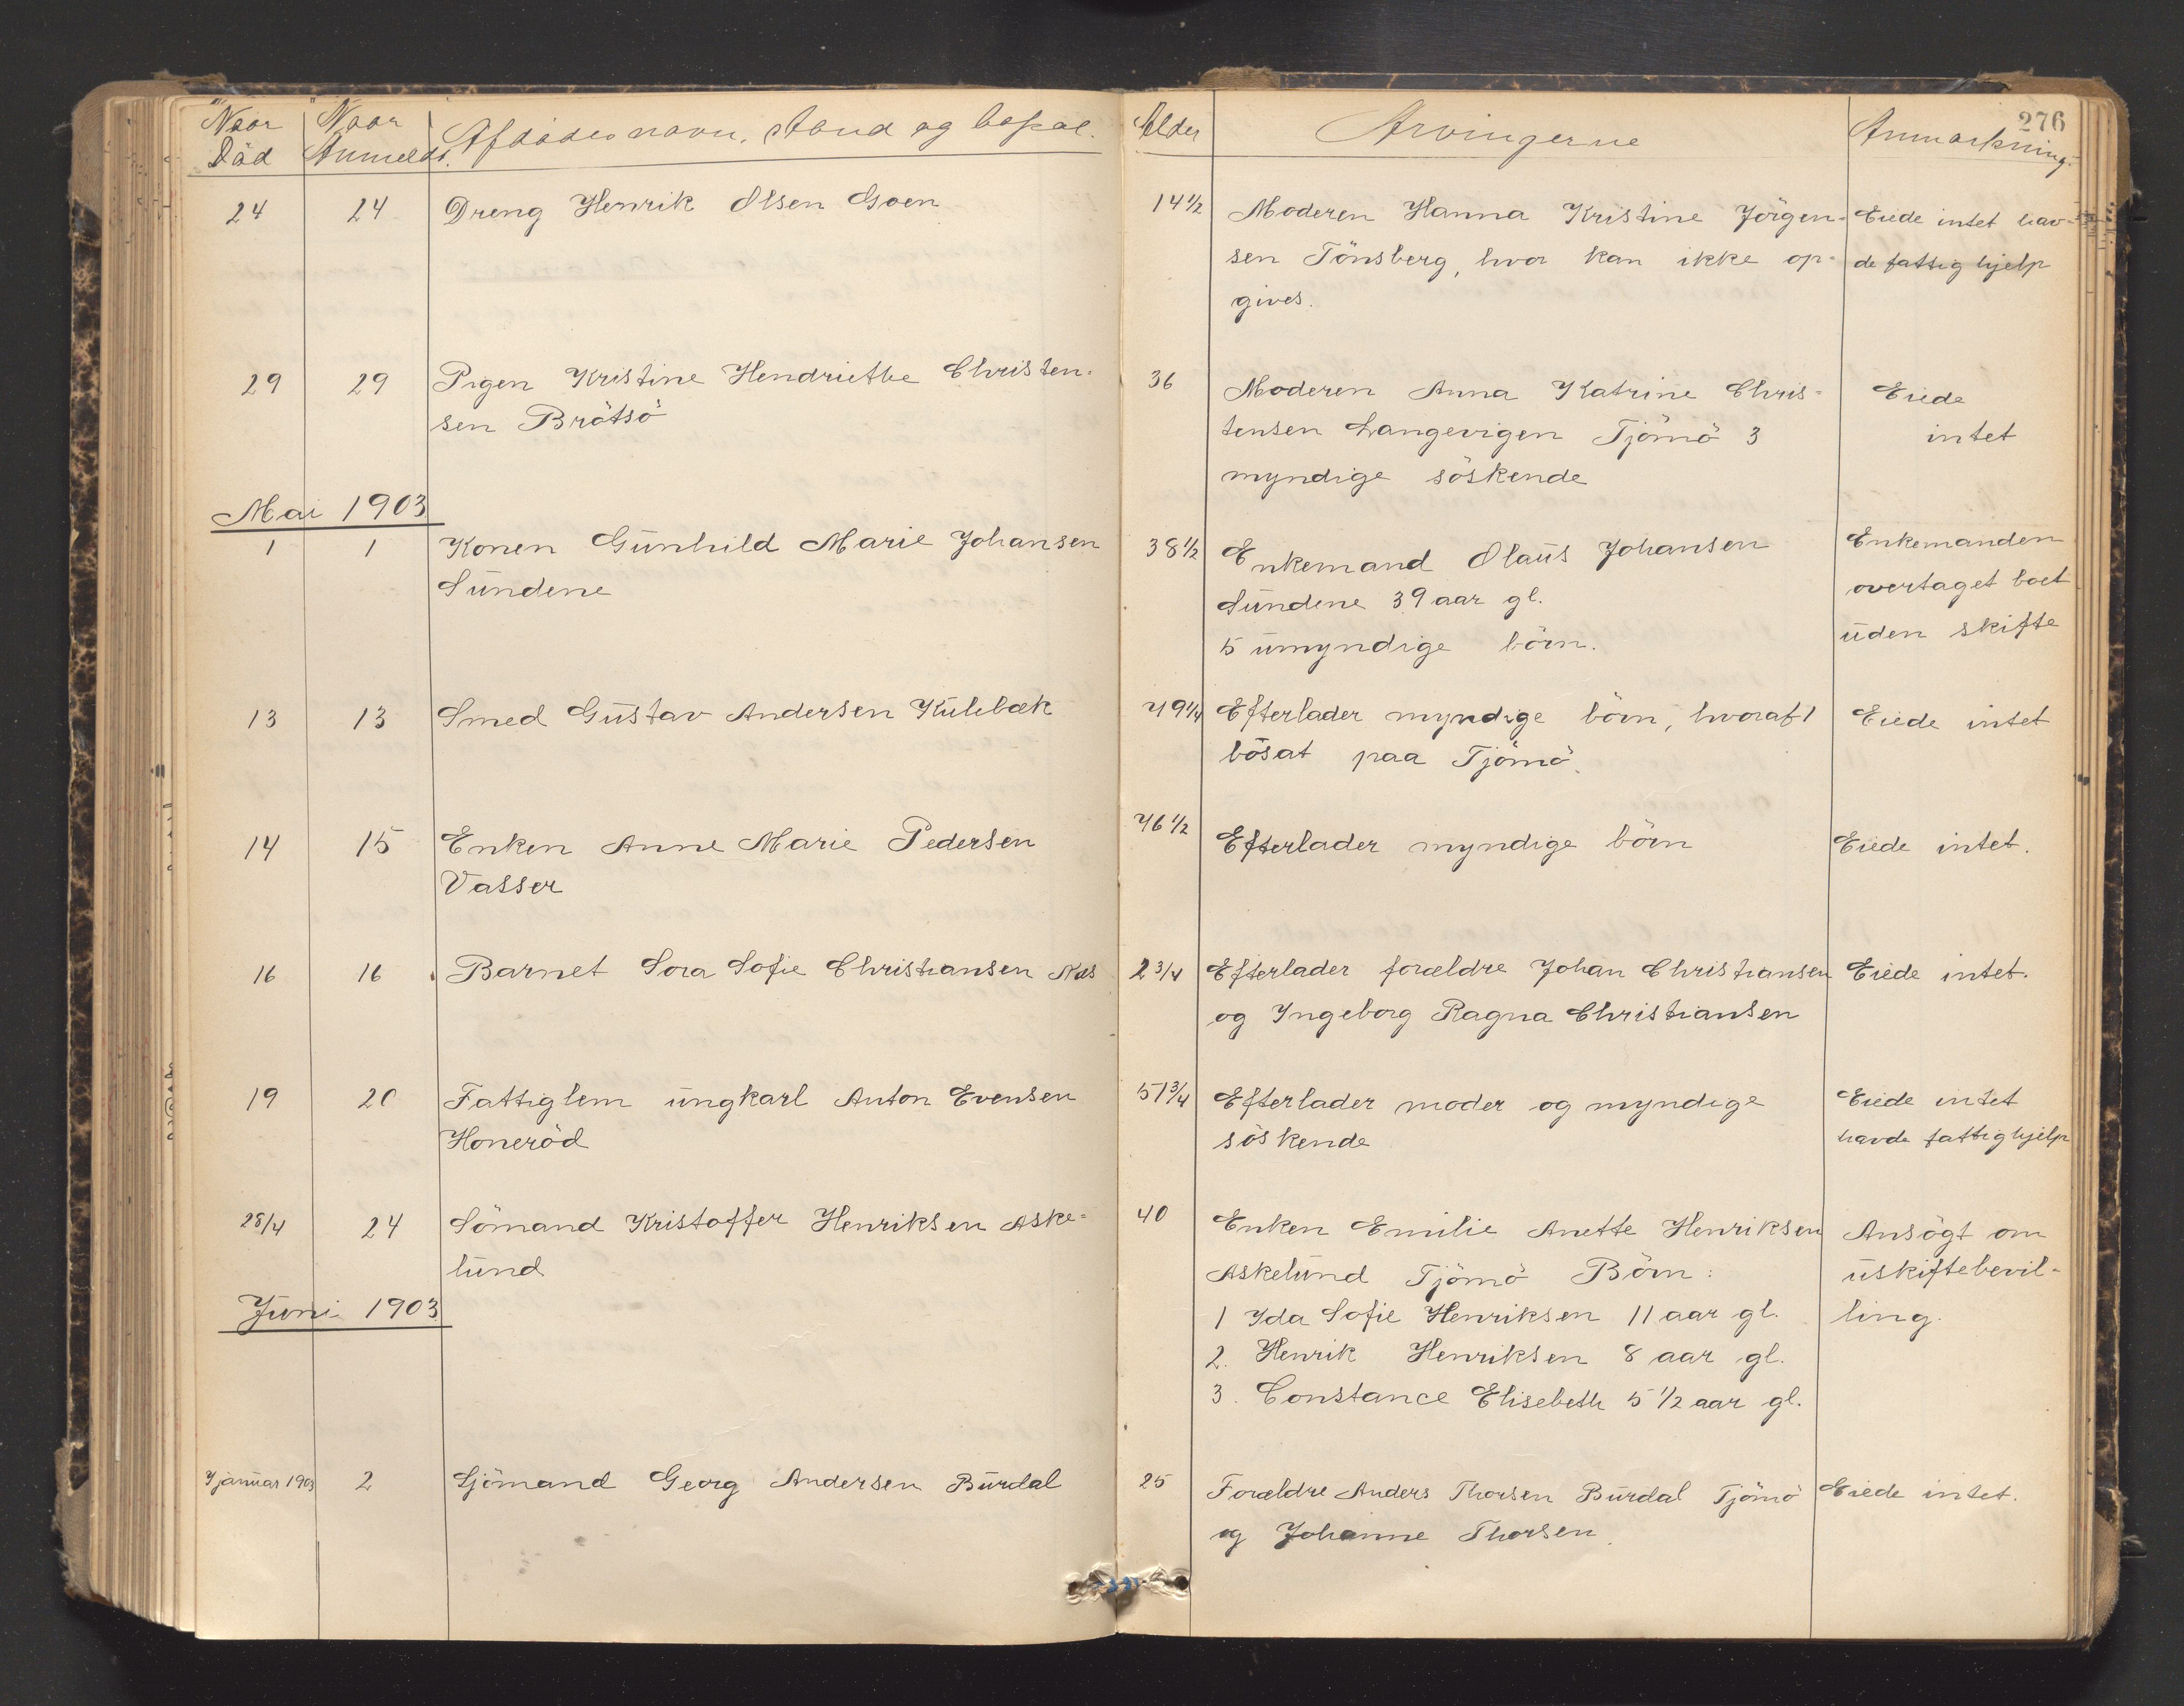 276
Naar Död
Naar Anmeldt.
Afdödes navn, stand og bopæl.
Alder
Arvingerne
Anmærkning.
24 24 Dreng Henrik Olsen 14 1/2 Moderen Hanna Kristine Jörgen- Eiede intet hav-
sen Tönsberg, hvor kan ikke op- de fattig hjelp
gives.
29 29 Pigen Kristine Hendriethe Christen- 36 Moderen Anna Katrine Chris- Eiede
sen Brötsö tensen Langevigen Tjömö 3 intet
myndige söskende
Mai 1903
1 1 Konen Gunhild Marie Johansen 38 1/2 Enkemand Olaus Johansen Enkemanden
Sundene Sundene 39 aar gl. overtaget boet
5 umyndige börn. uden skifte
13 13 Smed Gustav Andersen Kulebæk 79 1/4 Efterlader myndige börn, hvoraf 1 Eiede intet
bosat paa Tjömö.
14 15 Enken Anne Marie Pedersen 76 1/2 Efterlader myndige börn Eiede intet.
Vasser
16 16 Barnet Sofie Christiansen Næs 2 3/4 Efterlader forældre Johan Christiansen Eiede intet.
og Ingeborg Ragna Christiansen
19 20 Fattiglem ungkarl Anton Evensen 51 3/4 Efterlader moder og myndige Eiede intet
Honeröd söskende havde fattighjelp
28/4 24 Sömand Kristoffer Henriksen Aske- 40 Enken Emilie Anette Henriksen Ansögt om
lund Askelund Tjömö Börn: uskiftebevil-
Juni 1903 1 Ida Sofie Henriksen 11 aar gl. ling.
2. Henrik Henriksen 8 aar gl.
3. Constance Elisebeth 5 1/2 aar gl.
7 januar 1903 2 Sjömand Georg Andersen Burdal 25 Forældre Anders Thorsen Burdal Tjömö Eiede intet.
og Johanne Thorsen.